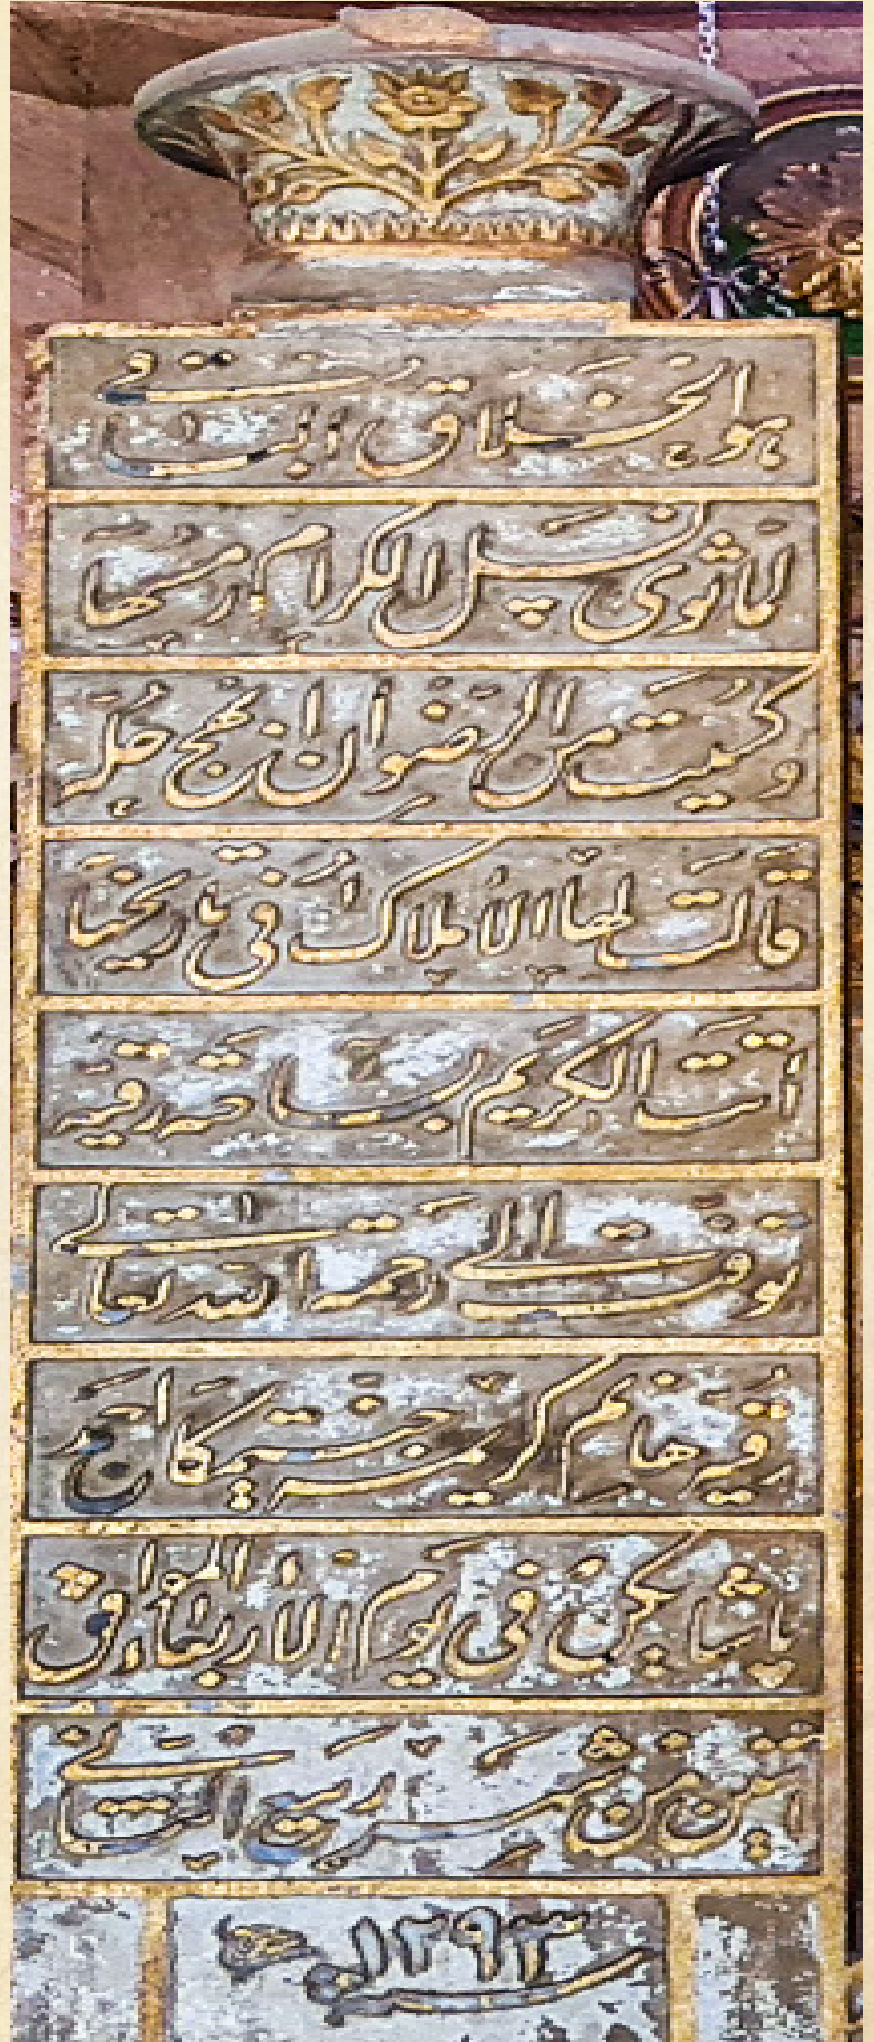 هو الخلاق الباقي
لما ثوى نسل الكرام رمسها
وكسيت من الرضوان ابهج حلة
قالت لها الأملاك في تاريخنا
أتت الكريم بساحة رقيه
توفت الى رحمة الله تعالى
رقيه هانم كريمة جنتمكان احمد
باشا يكن في يوم الأربعا الموافق
اثنين من شهر ربيع الثاني
سنة ١٢٩٣